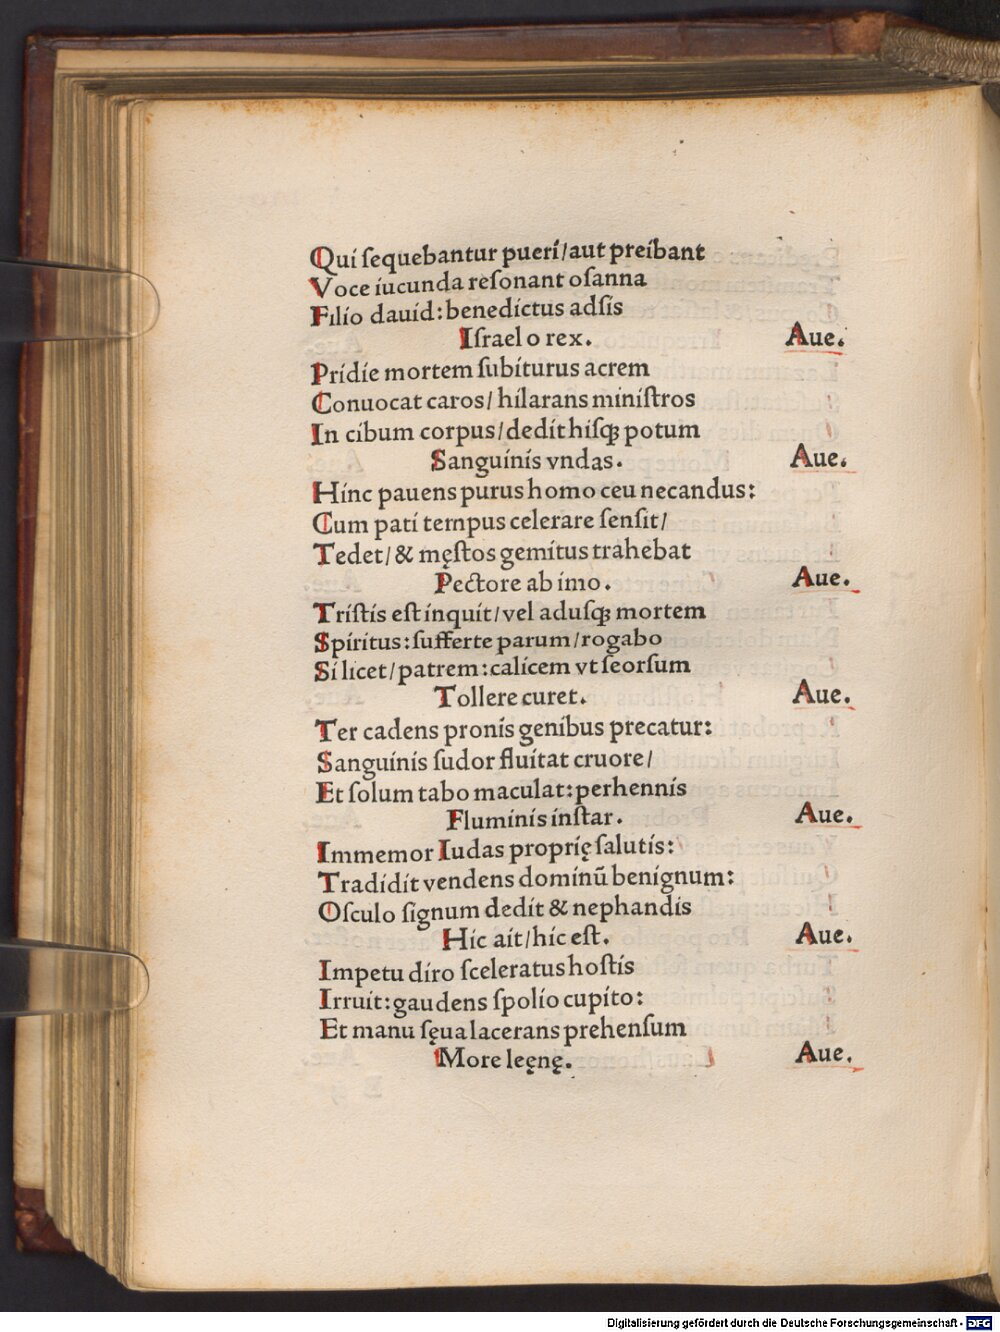 Qui ſequebantur pueri/aut preibant
Voce iucunda reſonant oſanna
Filio dauid: benedictus adſis
Iſrael o rex. Aue.
Pridie mortem ſubiturus acrem
Conuocat caros/ hilarans miniſtros
In cibum corpus/dedit hiſqꝫ potum
Sanguinis vndas. Aue.
Hinc pauens purus homo ceu necandus:
Cum pati tempus celerare ſenſit/
Tedet/& męſtos gemitus trahebat
Pectore ab imo. Aue.
Triſtis eſt inquit/vel aduſqꝫ mortem
Spiritus: ſufferte parum/rogabo
Si licet/patrem: calicem vt ſeorſum
Tollere curet. Aue.
Ter cadens pronis genibus precatur:
Sanguinis ſudor fluitat cruore/
Et ſolum tabo maculat: perhennis
Fluminis inſtar. Aue.
Immemor Iudas proprię ſalutis:
Tradidit vendens dominū benignum:
Oſculo ſignum dedit & nephandis
Hic ait/hic eſt. Aue.
Impetu diro ſceleratus hoſtis
Irruit: gaudens ſpolio cupito:
Et manu ſęua lacerans prehenſum
More leęnę. Aue.
Digitalisierung gefördert durch die Deutsche Forschungsgemeinschaft - DFG